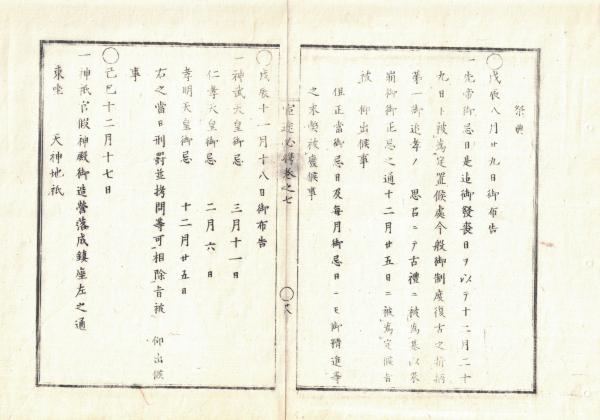 祭典
○戊辰八月廿九日御布告
一先帝御忌日是迄御發喪日ヲ以テ十二月二十
九日ト被爲定置候處今般御制度復古之折柄
第一御追孝ノ 思召ニテ古禮ニ被爲基以來
崩御御正忌之通十二月廿五日ニ被爲定候旨
被 仰出候事
但正當御忌日及每月御忌日ニモ御精進等
之求ヲ被廢候事
宣達必携卷之七
○戊辰十一月十八日御布告
一神武天皇御忌 三月十一日
仁孝天皇御忌 二月六日
孝明天皇御忌 十二月廿五日
右之當日刑罰並拷問等可相除旨被 仰出候
事
○己巳十二月十七日
一神祇官假神殿御造營落成鎭座左之通
東座 天神地祇